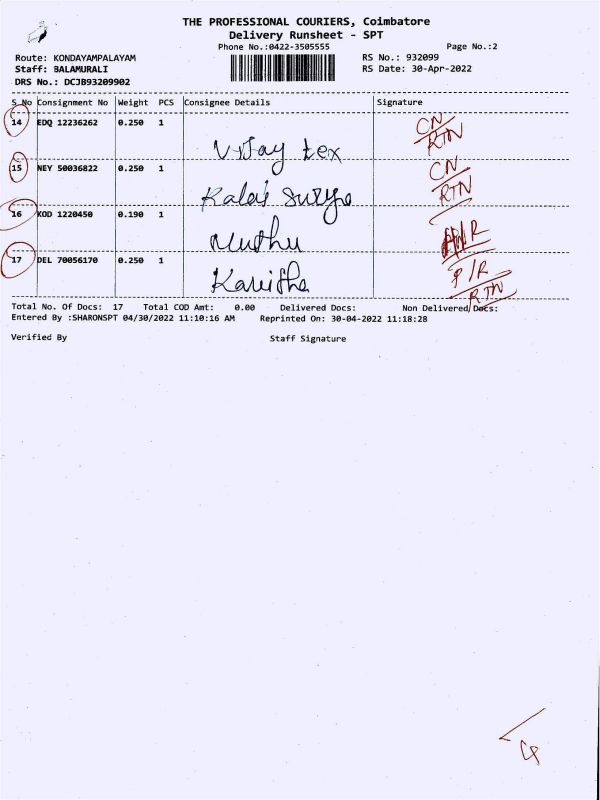 THE PROFESSIONAL COURIERS, Coimbatore
Delivery Runsheet - SPT
Phone No.:0422-3505555 Page No.:2
Route: KONDAYAMPALAYAM RS No.: 932099
Staff: BALAMURALI RS Date: 30-Apr-2022
DRS No.: DCJB93209902
S No Consignment No Weight PCS Consignee Details Signature
14 EDQ 12236262 0.250 1 CN
Vijay tex RTN
15 NEY 50036822 0.250 1 CN
Kalai Surya RTN
16 KOD 1220450 0.190 1
Muthu
17 DEL 70056170 0.250 1 P/R
RTN
Total No. Of Docs: 17 Total COD Amt: 0.00 Delivered Docs: Non Delivered Docs:
Entered By :SHARONSPT 04/30/2022 11:10:16 AM Reprinted On: 30-04-2022 11:18:28
Verified By Staff Signature